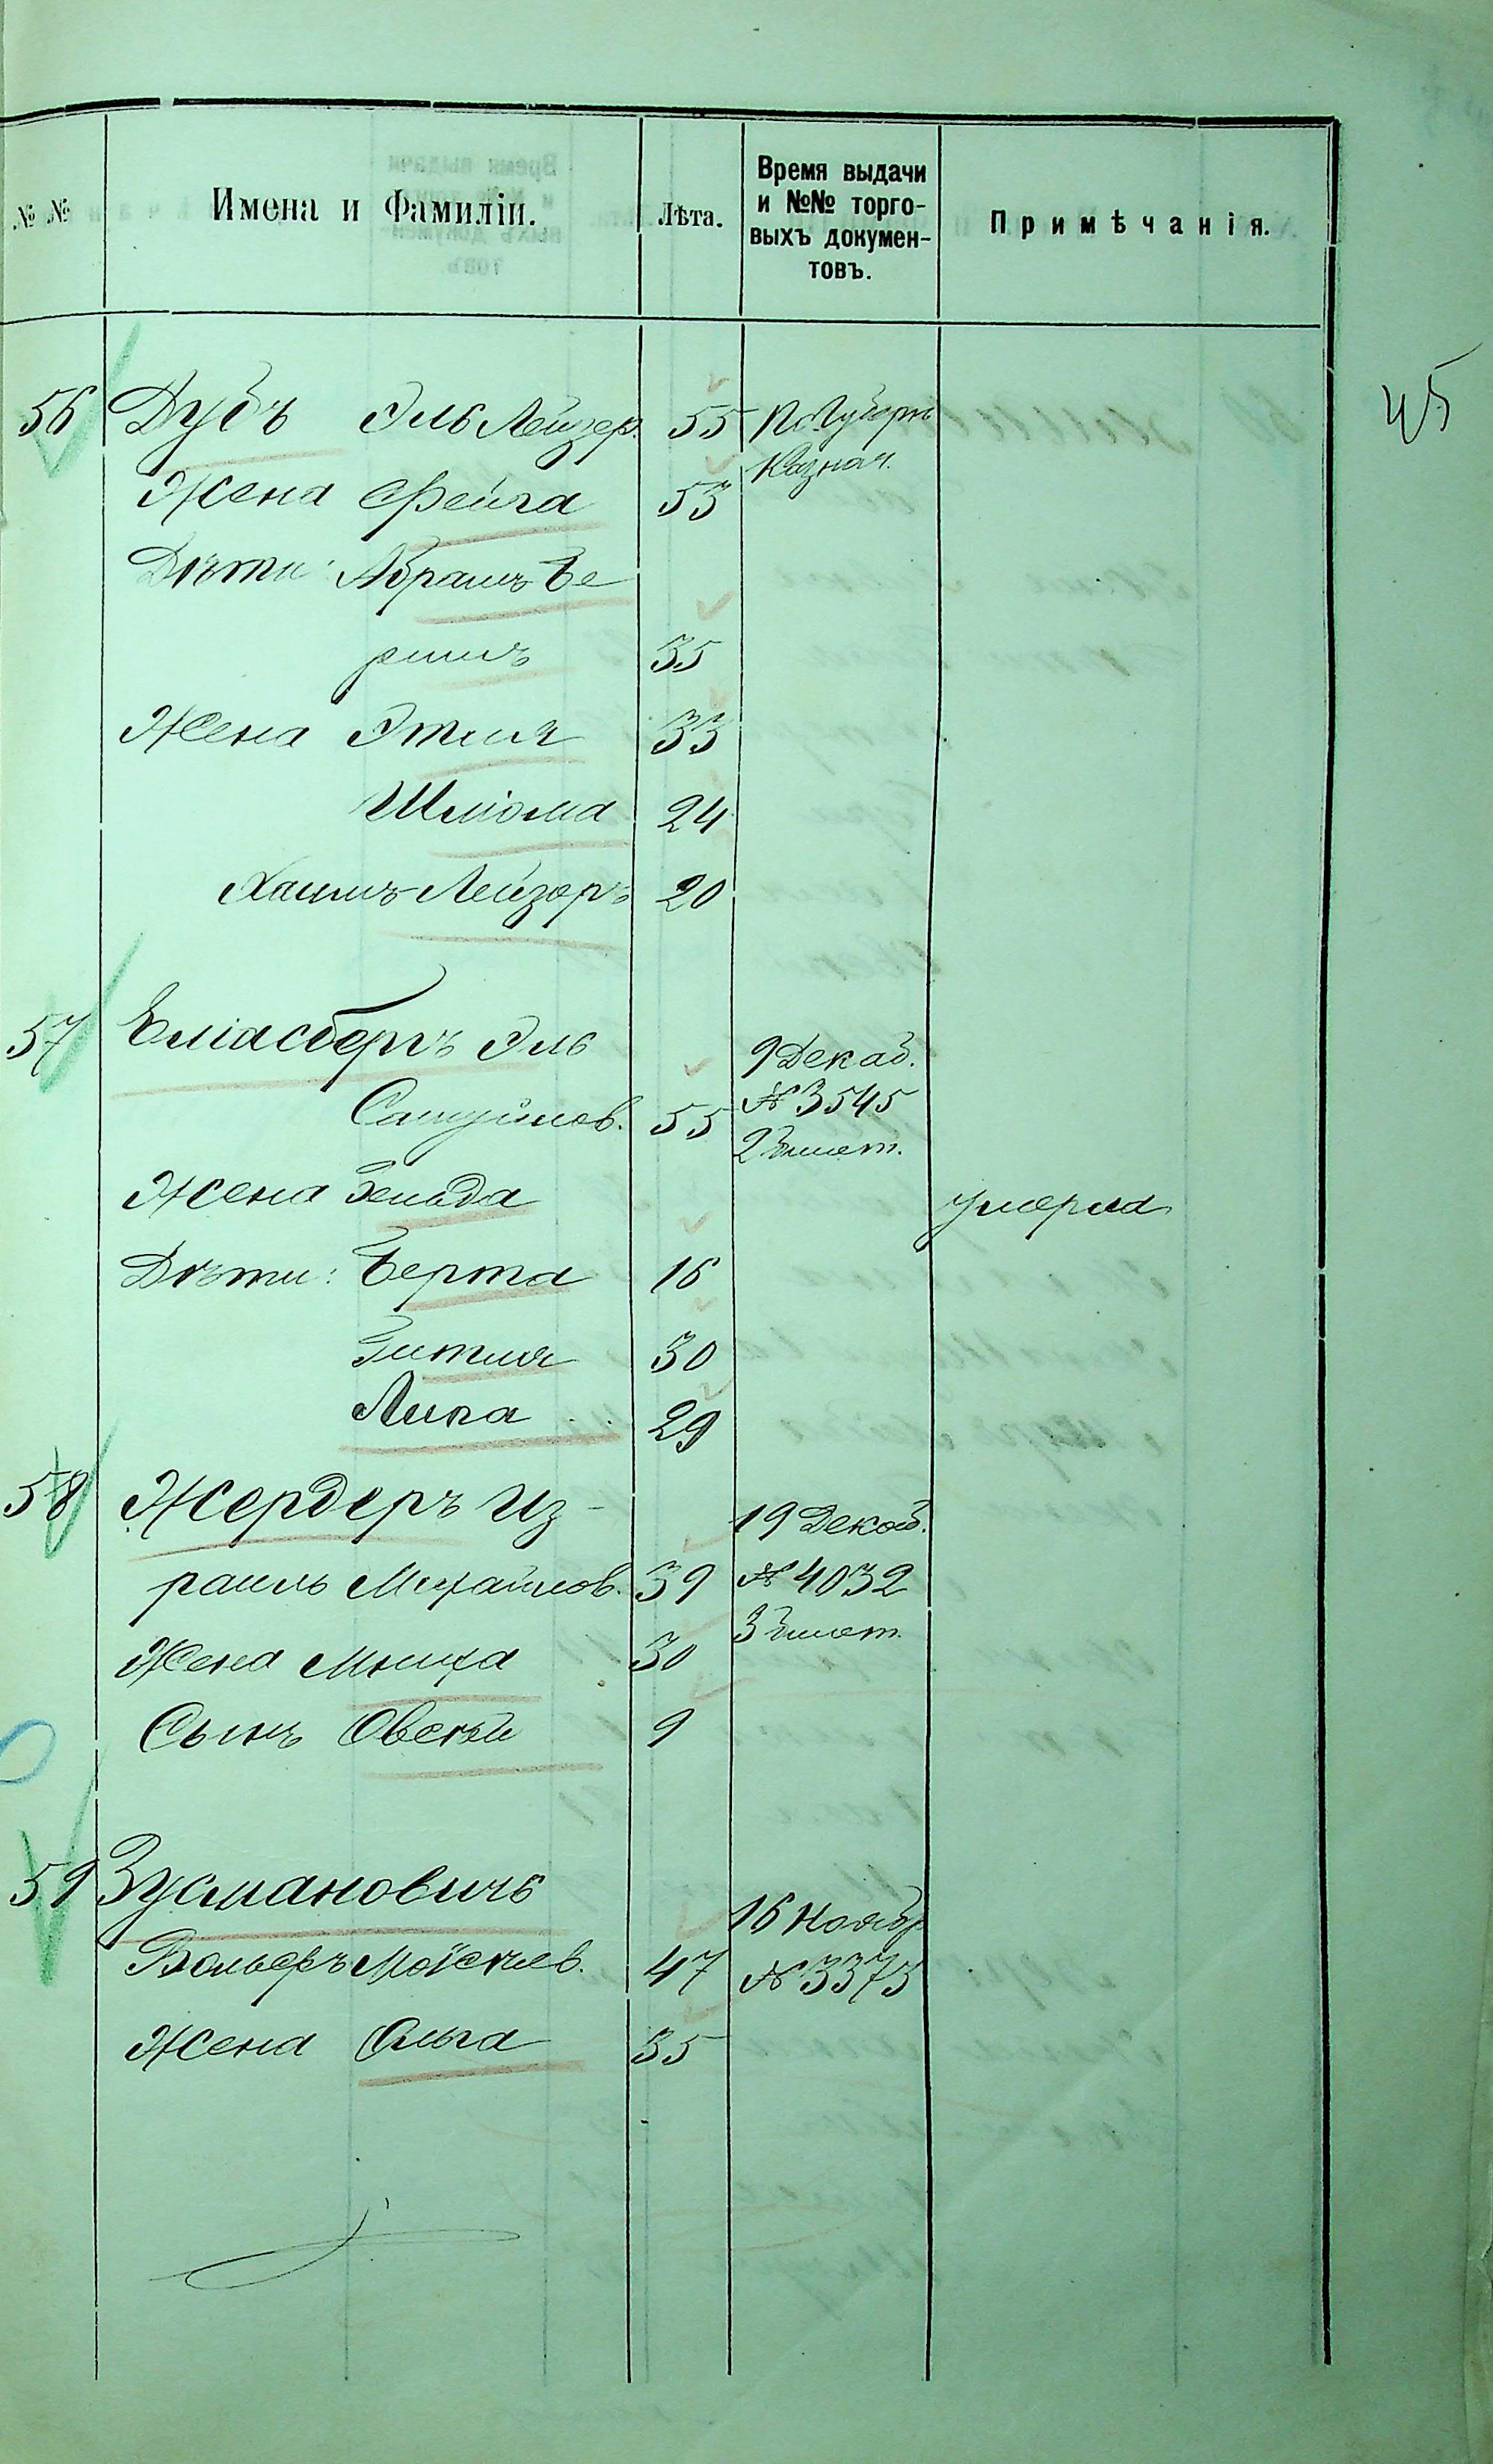 №№ Имена и Фамиліи. Лѣта. Время выдачи и №№ торго-выхъ докумен-товъ. Примѣчанія.
45
56 Дубъ Эль Лейзер. 55 По Губерн.
Казнач.
Жена Фейга 53
Дѣти: Абрамъ Бе
ришъ 35
Жена Этля 33
Шліома 24
Хаимъ-Лейзоръ 20
57 Еліасбергъ Эль
9 Декаб.
Самуйлов. 55 № 3545
2 билет.
Жена Зельда умерла
Дѣти: Берта 16
Гитля 30
Липа 29
58 Жердеръ Из-
19 Декаб.
раиль Михайлов. 39 № 4032
3 билет.
Жена Мниха 30
Сынъ Овсѣй 9
59 Зусмановичъ
16 Ноябр
Вольфъ Моисѣев. 47 № 3373
Жена Ольга 35